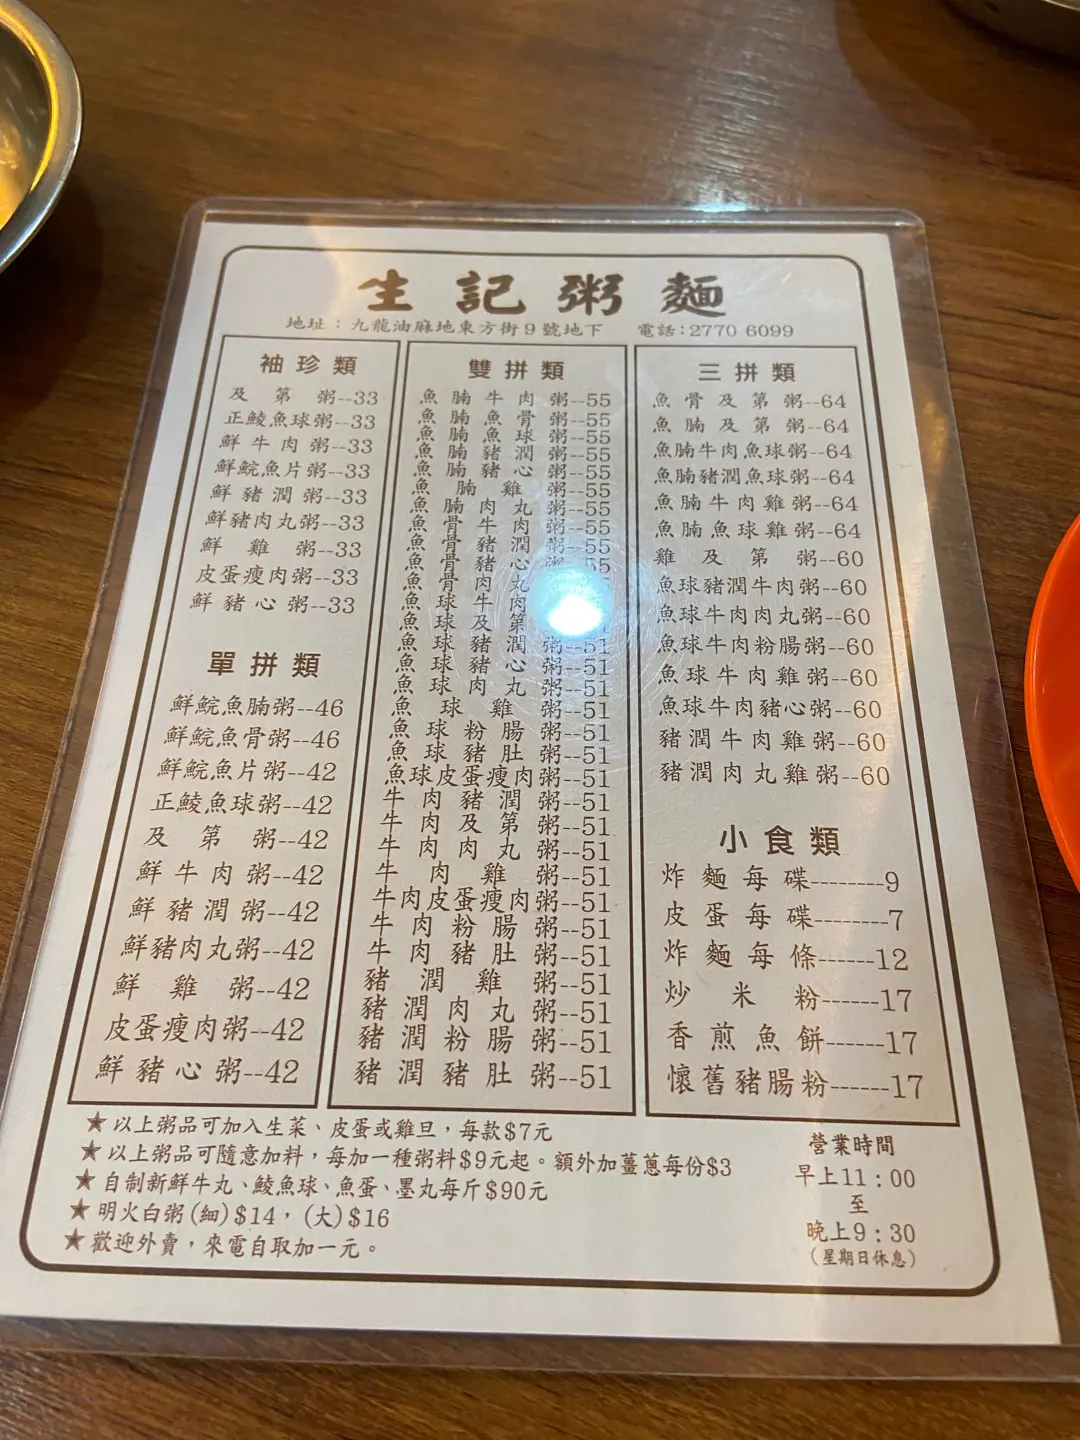 生記粥麵
地址：九龍油麻地東方街9號地下 電話：2770 6099
袖珍類
及第粥--33
正鯪魚球粥--33
鮮牛肉粥--33
鮮鯇魚片粥--33
鮮豬潤粥--33
鮮豬肉丸粥--33
鮮雞粥--33
皮蛋瘦肉粥--33
鮮豬心粥--33
單拼類
鮮鯇魚腩粥--46
鮮鯇魚骨粥--46
鮮鯇魚片粥--42
正鯪魚球粥--42
及第粥--42
鮮牛肉粥--42
鮮豬潤粥--42
鮮豬肉丸粥--42
鮮雞粥--42
皮蛋瘦肉粥--42
鮮豬心粥--42
雙拼類
魚腩牛肉粥--55
魚腩魚骨粥--55
魚腩魚球粥--55
魚腩豬潤粥--55
魚腩豬心粥--55
魚腩雞粥--55
魚腩肉丸粥--55
魚骨牛肉粥--55
魚骨豬潤粥--55
魚骨豬心粥--55
魚骨肉丸
魚球牛肉
魚球及第
魚球豬潤粥--51
魚球豬心粥--51
魚球肉丸粥--51
魚球雞粥--51
魚球粉腸粥--51
魚球豬肚粥--51
魚球皮蛋瘦肉粥--51
牛肉豬潤粥--51
牛肉及第粥--51
牛肉肉丸粥--51
牛肉雞粥--51
牛肉皮蛋瘦肉粥--51
牛肉粉腸粥--51
牛肉豬肚粥--51
豬潤雞粥--51
豬潤肉丸粥--51
豬潤粉腸粥--51
豬潤豬肚粥--51
三拼類
魚骨及第粥--64
魚腩及第粥--64
魚腩牛肉魚球粥--64
魚腩豬潤魚球粥--64
魚腩牛肉雞粥--64
魚腩魚球雞粥--64
雞及第粥--60
魚球豬潤牛肉粥--60
魚球牛肉肉丸粥--60
魚球牛肉粉腸粥--60
魚球牛肉雞粥--60
魚球牛肉豬心粥--60
豬潤牛肉雞粥--60
豬潤肉丸雞粥--60
小食類
炸麵每碟--------9
皮蛋每碟--------7
炸麵每條------12
炒米粉------17
香煎魚餅------17
懷舊豬腸粉------17
★以上粥品可加入生菜、皮蛋或雞旦，每款$7元
★以上粥品可隨意加料，每加一種粥料$9元起。額外加薑蔥每份$3
★自制新鮮牛丸、鯪魚球、魚蛋、墨丸每斤$90元
★明火白粥(細)$14，(大)$16
★歡迎外賣，來電自取加一元。
營業時間
早上11：00
至
晚上9：30
(星期日休息)